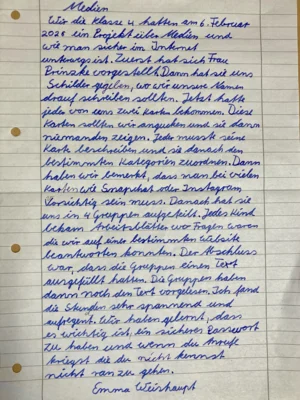 Medien
Wir die Klasse 4 hatten am 6. Februar
ein Projekt über Medien und
wie man sicher im Internet
unterwegs ist. Zuerst hat sich Frau
Prinzke vorgestellt. Dann hat sie uns
Schilder gegeben, wo wir unsere Namen
drauf schreiben sollten. Jetzt hatte
jedes von uns zwei Karten bekommen. Diese
Karten sollten wir angucken und sie dann
niemanden zeigen. Jedes musste seine
Karte beschreiben und sie danach den
bestimmten Kategorien zuordnen. Dann
haben wir bemerkt, dass man bei vielen
Karten wie Snapchat oder Instagram
Vorsichtig sein muss. Danach hat sie
uns in 4 Gruppen aufgeteilt. Jedes Kind
bekam Arbeitsblätter wo Fragen waren
die wir auf einer bestimmten Website
beantworten konnten. Der Abschluss
war, dass die Gruppen einen Text
ausgefüllt hatten. Die Gruppen haben
dann noch den Text vorgelesen. Ich fand
die Stunden sehr spannend und
aufregent. Wir haben gelernt, dass
es wichtig ist, ein sicheres Passwort
zu haben und wenn du Anrufe
kriegst die du nicht kennst
nicht ran zu gehen.
Emma Weishaupt